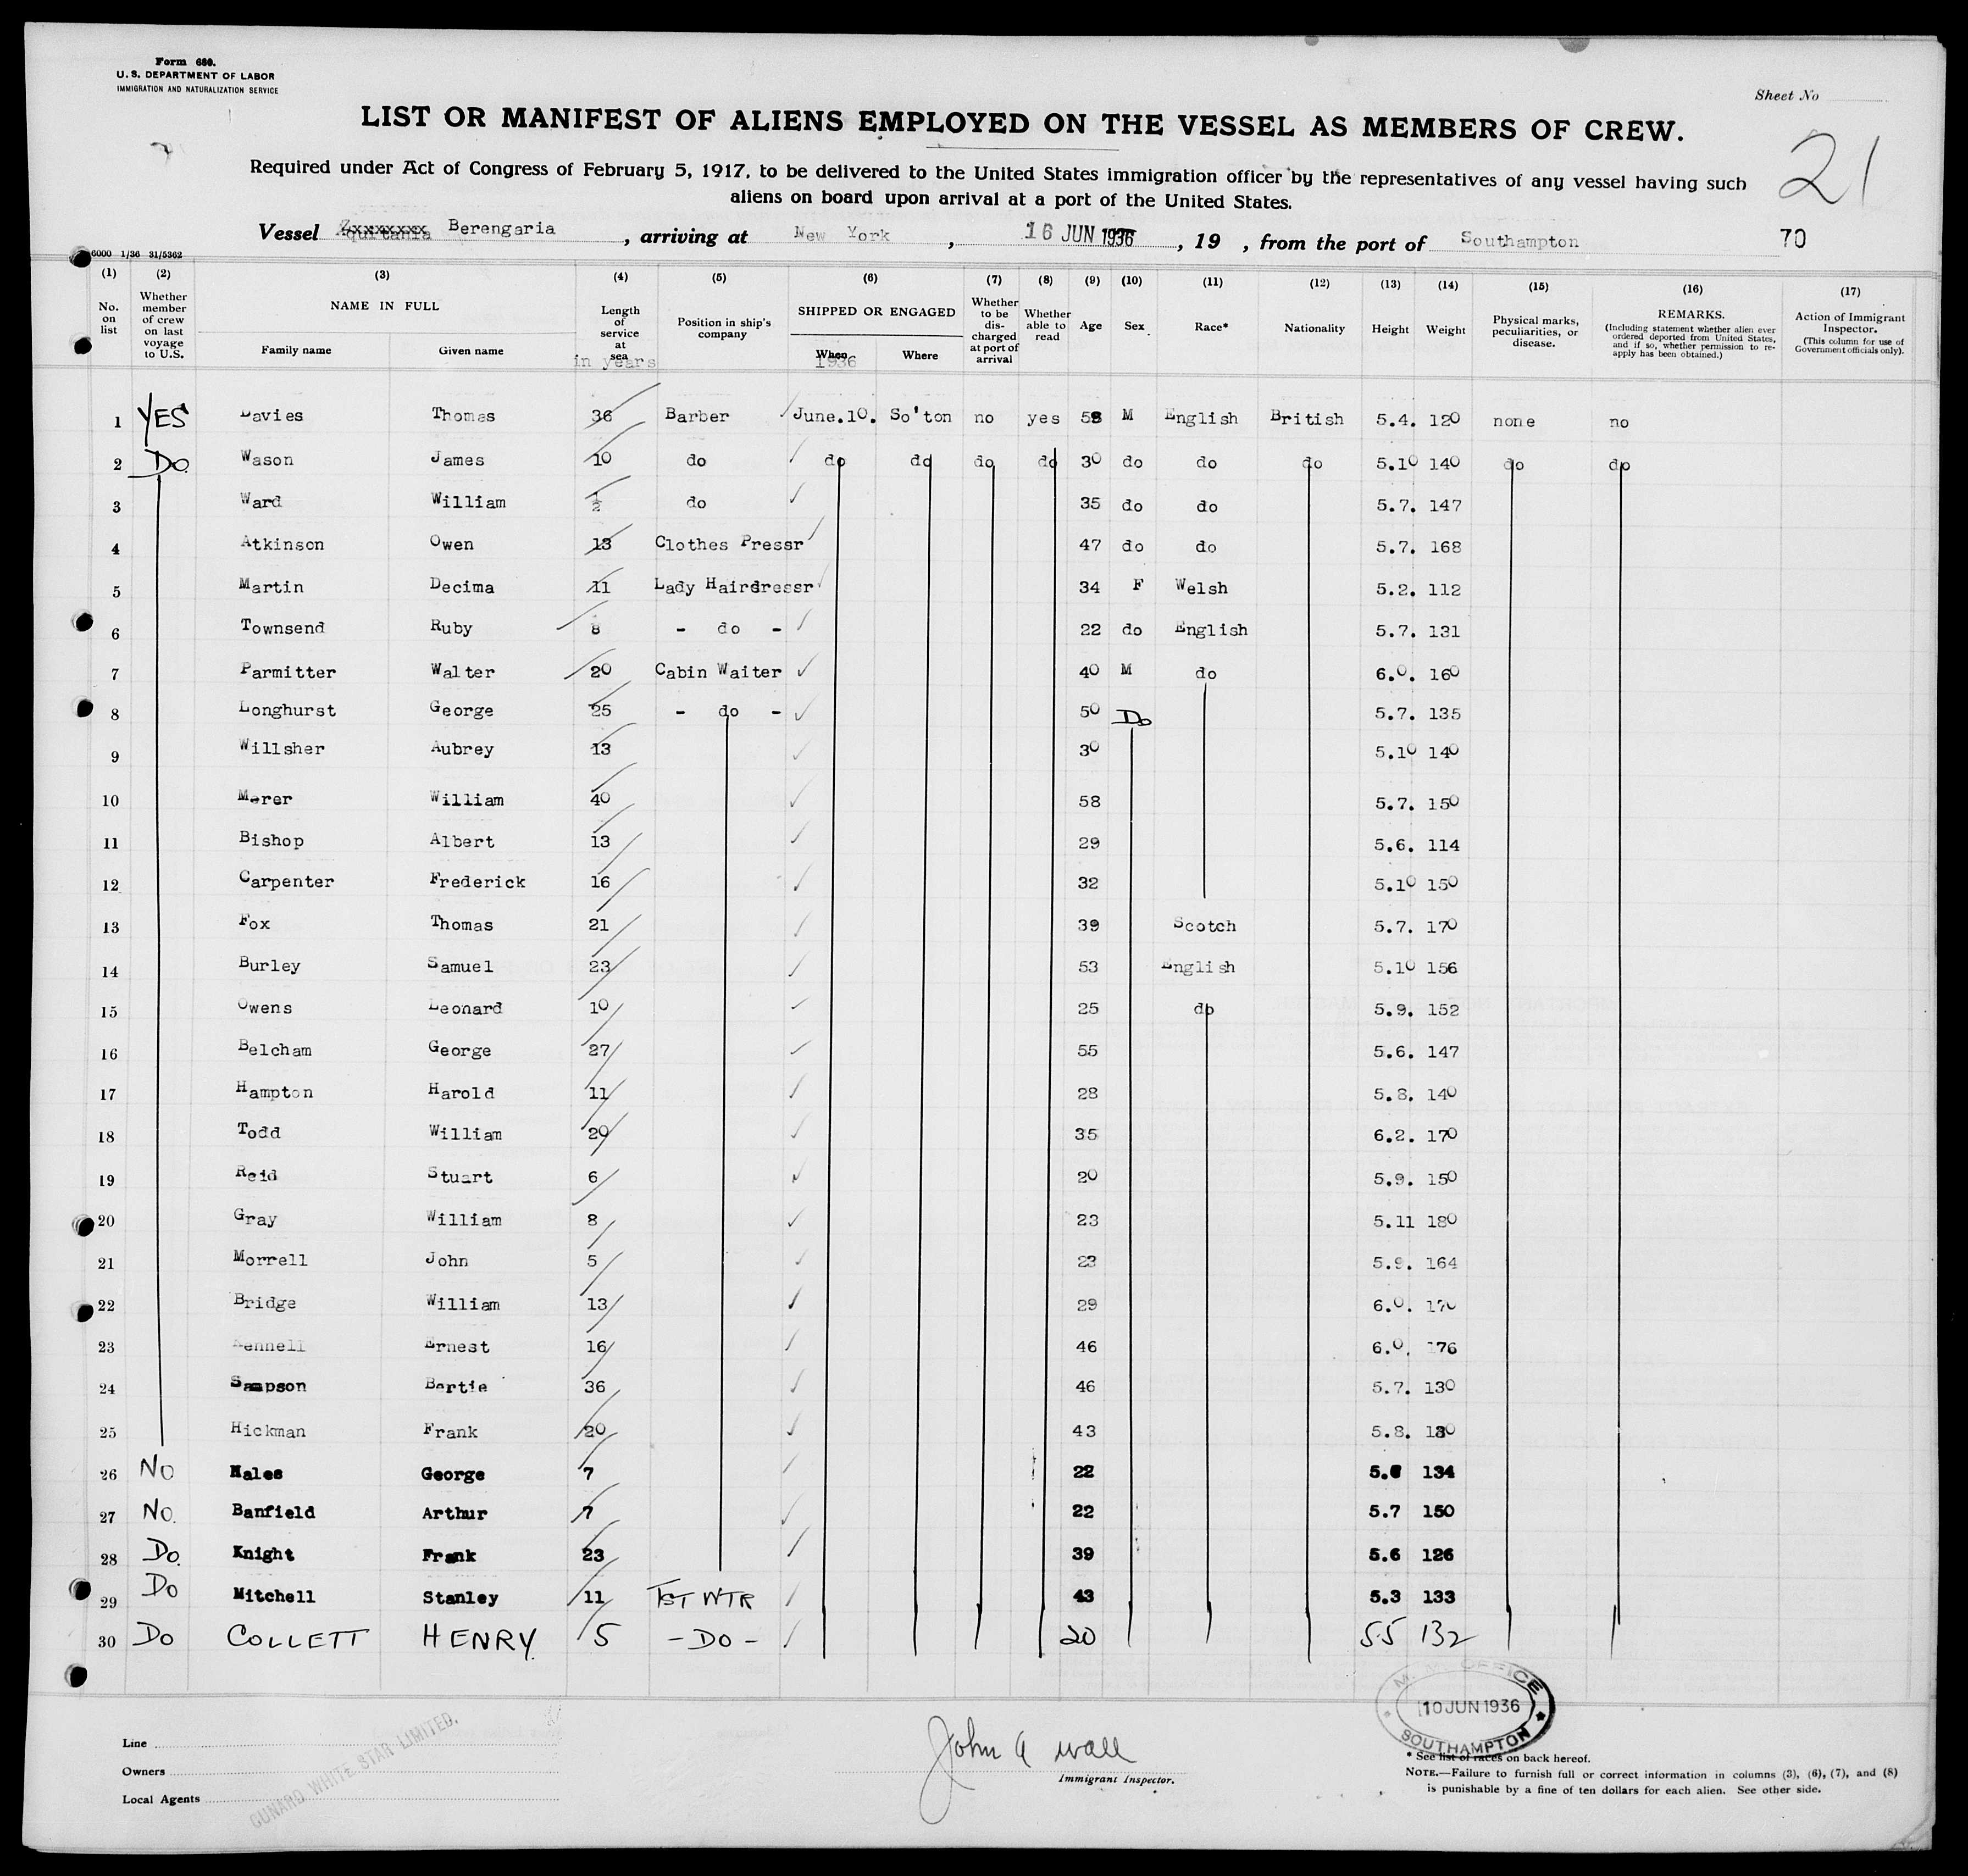 Form 680.
U. S. DEPARTMENT OF LABOR
IMMIGRATION AND NATURALIZATION SERVICE
Sheet No
LIST OR MANIFEST OF ALIENS EMPLOYED ON THE VESSEL AS MEMBERS OF CREW.
21
Required under Act of Congress of February 5, 1917, to be delivered to the United States immigration officer by the representatives of any vessel having such
aliens on board upon arrival at a port of the United States.
Vessel Berengaria, arriving at New York, 16 JUN 1936, 19 , from the port of Southampton 70
6000 1/36 31/5362
(1) (2) (3) (4) (5) (6) (7) (8) (9) (10) (11) (12) (13) (14) (15) (16) (17)
No. on list
Whether member of crew on last voyage to U.S.
NAME IN FULL
Family name
Given name
Length of service at sea
in years
Position in ship's company
SHIPPED OR ENGAGED
When
1936
Where
Whether to be discharged at port of arrival
Whether able to read
Age
Sex
Race*
Nationality
Height
Weight
Physical marks, peculiarities, or disease.
REMARKS.
(Including statement whether alien ever ordered deported from United States, and if so, whether permission to re-apply has been obtained.)
Action of Immigrant Inspector.
(This column for use of Government officials only).
1 YES Davies Thomas 36 Barber June.10. So'ton no yes 58 M English British 5.4. 120 none no
2 Do. Wason James 10 do do do do do 30 do do do 5.10 140 do do
3 Ward William 1/2 do 35 do do 5.7. 147
4 Atkinson Owen 13 Clothes Pressr 47 do do 5.7. 168
5 Martin Decima 11 Lady Hairdressr 34 F Welsh 5.2. 112
6 Townsend Ruby 8 - do - 22 do English 5.7. 131
7 Parmitter Walter 20 Cabin Waiter 40 M do 6.0. 160
8 Longhurst George 25 - do - 50 Do 5.7. 135
9 Willsher Aubrey 13 30 5.10 140
10 Merer William 40 58 5.7. 150
11 Bishop Albert 13 29 5.6. 114
12 Carpenter Frederick 16 32 5.10 150
13 Fox Thomas 21 39 Scotch 5.7. 170
14 Burley Samuel 23 53 English 5.10 156
15 Owens Leonard 10 25 do 5.9. 152
16 Belcham George 27 55 5.6. 147
17 Hampton Harold 11 28 5.8. 140
18 Todd William 20 35 6.2. 170
19 Reid Stuart 6 20 5.9. 150
20 Gray William 8 23 5.11 180
21 Morrell John 5 23 5.9. 164
22 Bridge William 13 29 6.0. 170
23 Ernest 16 46 6.0. 176
24 Sampson Bertie 36 46 5.7. 130
25 Hickman Frank 20 43 5.8. 130
26 No Hales George 7 22 5.6 134
27 No. Banfield Arthur 7 22 5.7 150
28 Do. Knight Frank 23 39 5.6 126
29 Do Mitchell Stanley 11 TST WTR 43 5.3 133
30 Do COLLETT HENRY. 5 - DO - 20 5.5 132
OFFICE
10 JUN 1936
SOUTHAMPTON
Line
Owners
Local Agents
CUNARD WHITE STAR LIMITED.
John A Wall
Immigrant Inspector.
* See list of races on back hereof.
NOTE.—Failure to furnish full or correct information in columns (3), (6), (7), and (8)
is punishable by a fine of ten dollars for each alien. See other side.